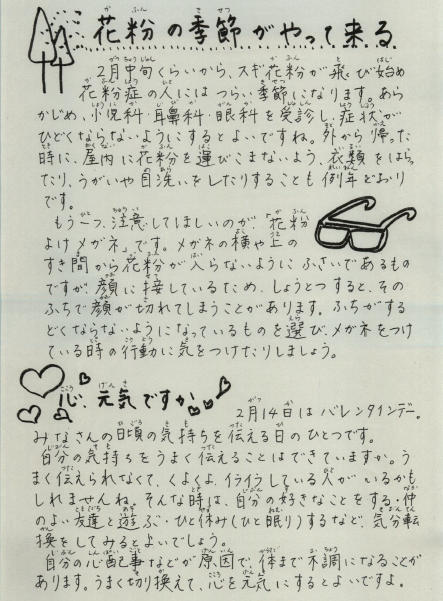 花粉の季節がやって来る
2月中旬くらいから、スギ花粉が飛び始め
花粉症の人には つらい季節になります。あら
かじめ、小児科・耳鼻科・眼科を受診し、症状が
ひどくならないようにするとよいですね。外から帰った
時に、屋内に花粉を運びこまないよう、衣類をはら
ったり、うがいや目洗いをしたりすることも例年どおり
です。
もう一つ、注意してほしいのが、「花粉
よけメガネ」です。メガネの横や上の
すき間から花粉が入らないようにふさいであるもの
ですが、顔に接しているため、しょうとつすると、その
ふちで顔が切れてしまうことがあります。ふちがする
どくならないようになっているものを選び、メガネをつけ
ている時の行動に気をつけたりしましょう。
心、元気ですか
2月14日はバレンタインデー。
みなさんの日頃の気持ちを伝える日のひとつです。
自分の気持ちをうまく伝えることはできていますか。う
まく伝えられなくて、くよくよ、イライラしている人がいるかも
しれませんね。そんな時は、自分の好きなことをする・仲
のよい友達と遊ぶ・ひと休み(ひと眠り)するなど、気分転
換をしてみるとよいでしょう。
自分の心配事などが原因で、体まで不調になることが
あります。うまく切り換えて、心を元気にするとよいですよ。